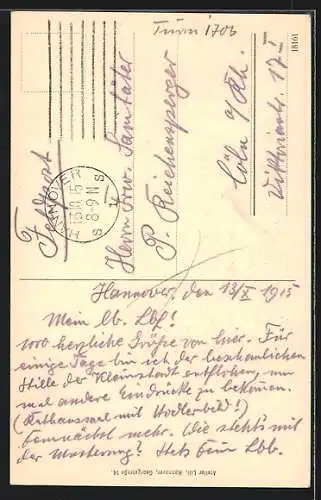 Turm 1706
18161
Feldpost
HANNOVER
13.10.15
8-9 N
S S
Herrn Frw. Sanitäter
P. Reichensperger
Cöln a/Rh.
17 I
Hannover, den 13/X 1915
Mein lb. Lbf!
1000 herzliche Grüße von hier. Für
einige Tage bin ich der beschaulichen
Stille der Kleinstadt entflohen, um
mal andere Eindrücke zu bekommen.
(Rathaussaal mit Hodlerbild!)
Demnächst mehr. Wie steht's mit
der Musterung? Stets Dein Lbb.
Atelier Lill, Hannover, Georgstraße 14.